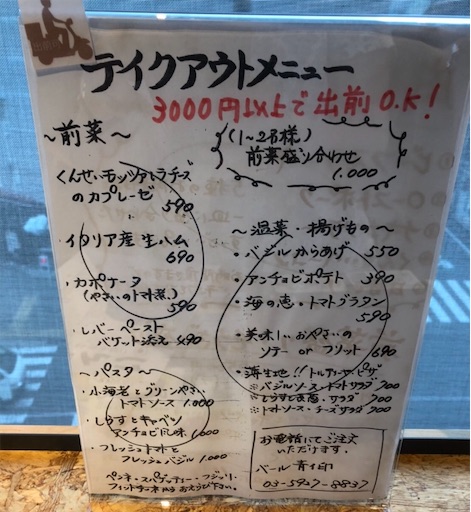 テイクアウトメニュー
3000円以上で出前O.K!
~前菜~
くんせいモッツァレラチーズ
のカプレーゼ
590
・イタリア産生ハム
690
・カポナータ
(やさいのトマト煮)
590
・レバーペースト
バゲット添え 490
~パスタ~
・小海老とグリーンやさい
トマトソース 1.000
・しらすとキャベツ
アンチョビ風味 1.000
・フレッシュトマトと
フレッシュバジル 1.000
ペンネ・スパゲッティー・フジッリ・
フィットチーネからおえらび下さい。
(1~2名様)
前菜盛り合わせ
1.000
~温菜・揚げもの~
・バジルからあげ 550
・アンチョビポテト 390
・海の恵・トマトグラタン
590
・美味しいおやさいの
ソテー or フリット 690
・薄生地!!トルティーヤ・ピザ
※バジルソース・トマトサラダ 700
※しらすと青のり・サラダ 700
※トマトソース・チーズサラダ 700
お電話にてご注文
いただけます。
バール 青い印
03-5927-8837